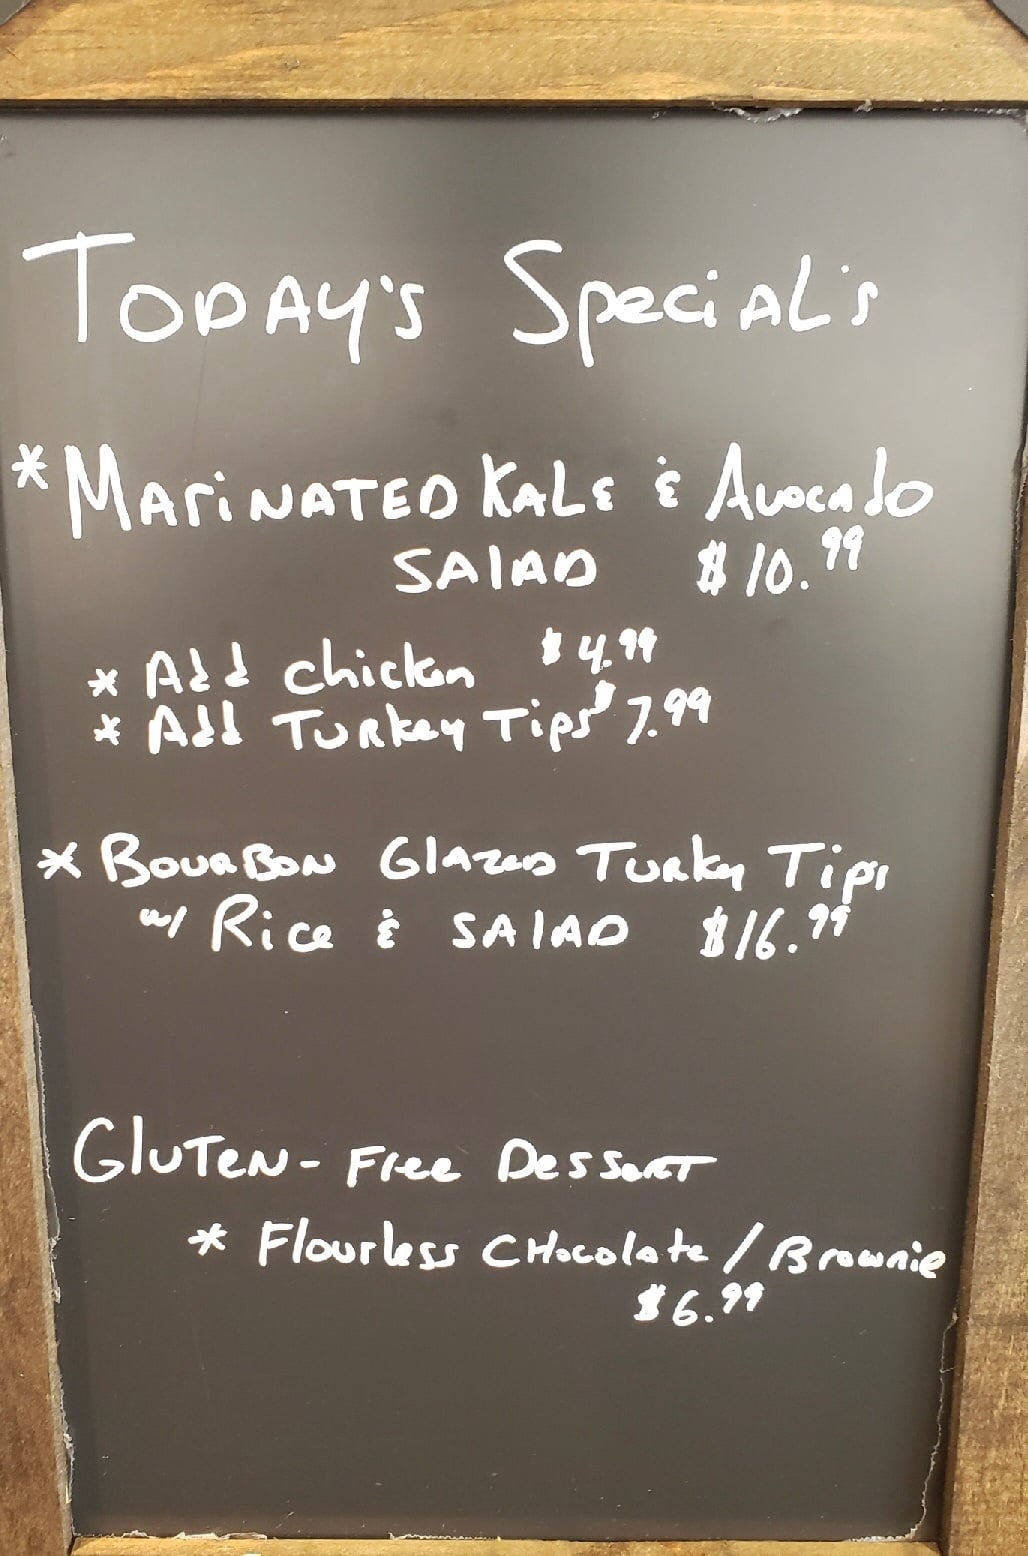 Today's Special's
* Marinated Kale & Avocado
Salad $10.99
* Add chicken $4.99
* Add Turkey Tips $7.99
* Bourbon Glazed Turkey Tips
w/ Rice & Salad $16.99
Gluten-Free Dessert
* Flourless Chocolate / Brownie
$6.99